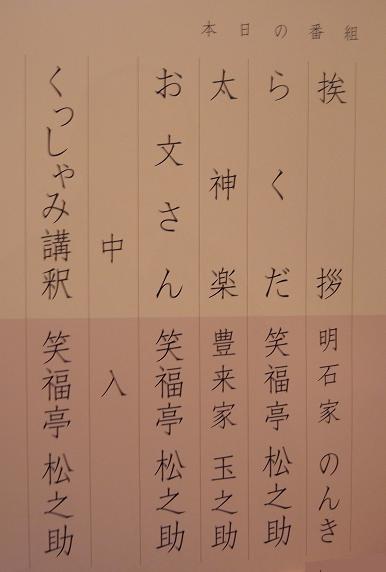 本日の番組
挨拶 明石家 のんき
らくだ 笑福亭 松之助
太神楽 豊来家 玉之助
お文さん 笑福亭 松之助
中入
くっしゃみ講釈 笑福亭 松之助